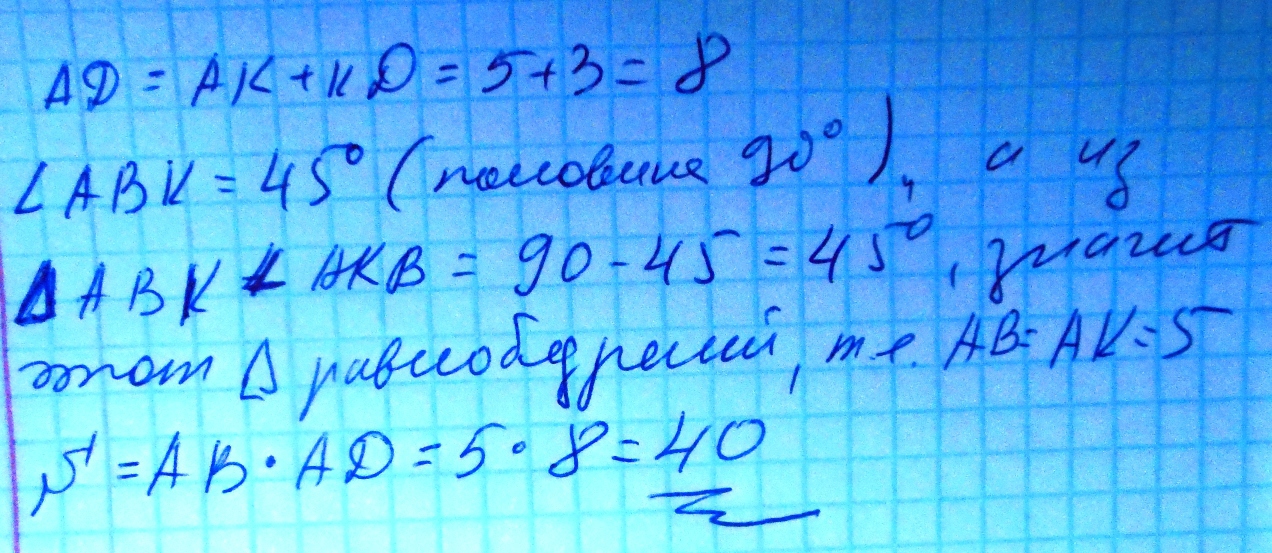 AD = AK + KD = 5 + 3 = 8
∠ABK = 45° (половина 90°), а из
ΔABK ∠AKB = 90 - 45 = 45°, значит
этот Δ равнобедренный, т.е. AB = AK = 5
S = AB · AD = 5 · 8 = 40